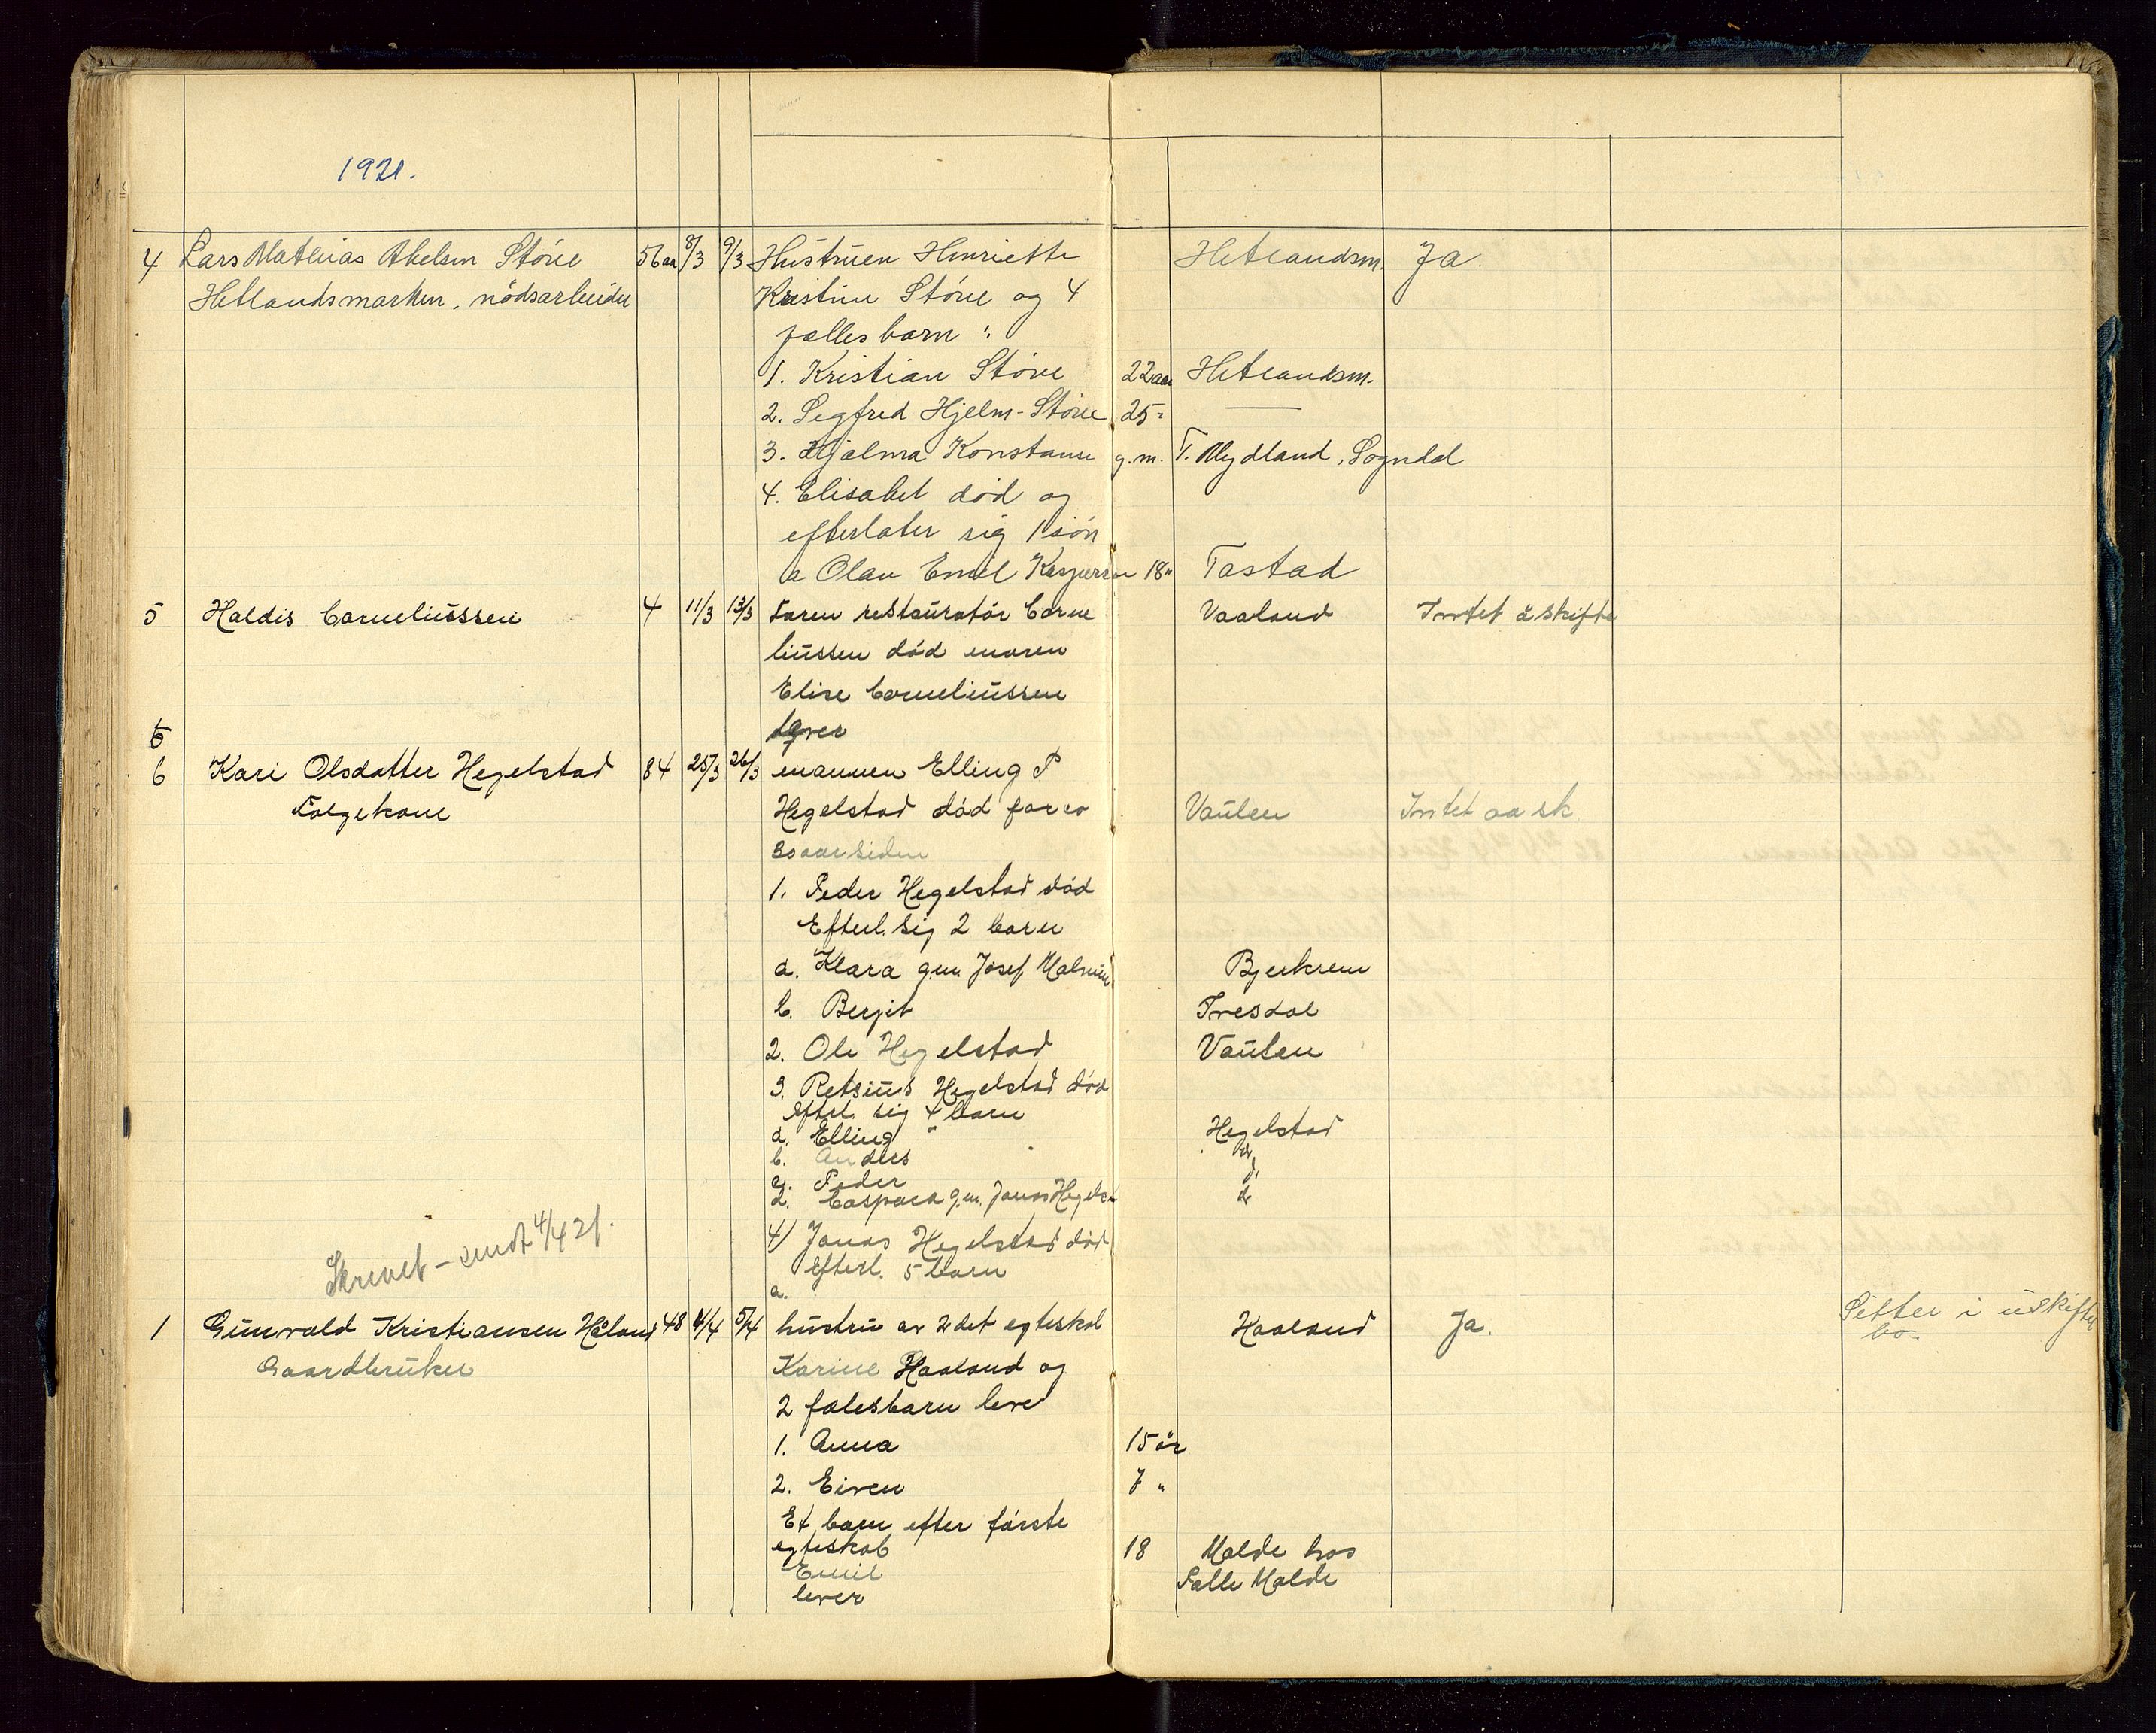 1921.
4 Lars Mathias Abelsen Störe 56 aa 8/3 9/3 Hustruen Henriette Hetlandsm. Ja
Hetlandsmarken, nödsarbeider Kristine Störe og 4
fællesbarn :
1. Kristian Störe 22 aar Hetlandsm.
2. Segfred Hjelm-Störe 25 " —
3. Hjalma Konstanse g.m. T. Mydland, Sogndal
4. Elisabet död og
efterlater sig 1 sön
a Olav Emil Kaspersen 18 " Tastad
5 Haldis Corneliussen 4 11/3 13/3 Faren restauratör Corne Vaaland Intet å skifte
liussen död moren
Elise Corneliussen
lever
6
6 Kari Olsdatter Hegelstad 84 25/3 26/3 mannen Elling P
Folgekone Hegelstad död for ca Vaulen Intet aa sk.
30 aar siden
1. Peder Hegelstad död
Efterl. sig 2 barn
a. Klara gm. Josef Malmin Bjerkrem
b. Bergit Tresdal
2. Ole Hegelstad Vaulen
3. Retsius Hegelstad död
Efterl. sig 4 barn
a. Elling Hegelstad
b. Anders
c. Peder
d. Caspara gm. Jonas Hegelst
4) Jonas Hegelstad död
efterl. 5 barn
Skrevet - sendt 4/4 21.
a.
1 Gunvald Kristiansen Håland 48 4/4 5/4 hustru av 2det egteskab Haaland Ja. Sitter i uskiftet
bo.
Gaardbruker Karine Haaland og
2 falesbarn lever
1. Anna 15 år
2. Eiven 7 "
Et barn efter förste
egteskab 18 Malde hos
Emil Salle Malde
lever